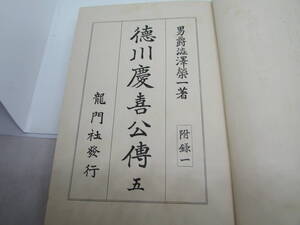 男爵澁澤榮一著
附錄一
德川慶喜公傳 五
龍門社發行